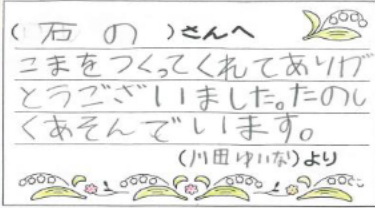 (石の)さんへ
こまをつくってくれてありが
とうございました。たのし
くあそんでいます。
(川田ゆいな)より